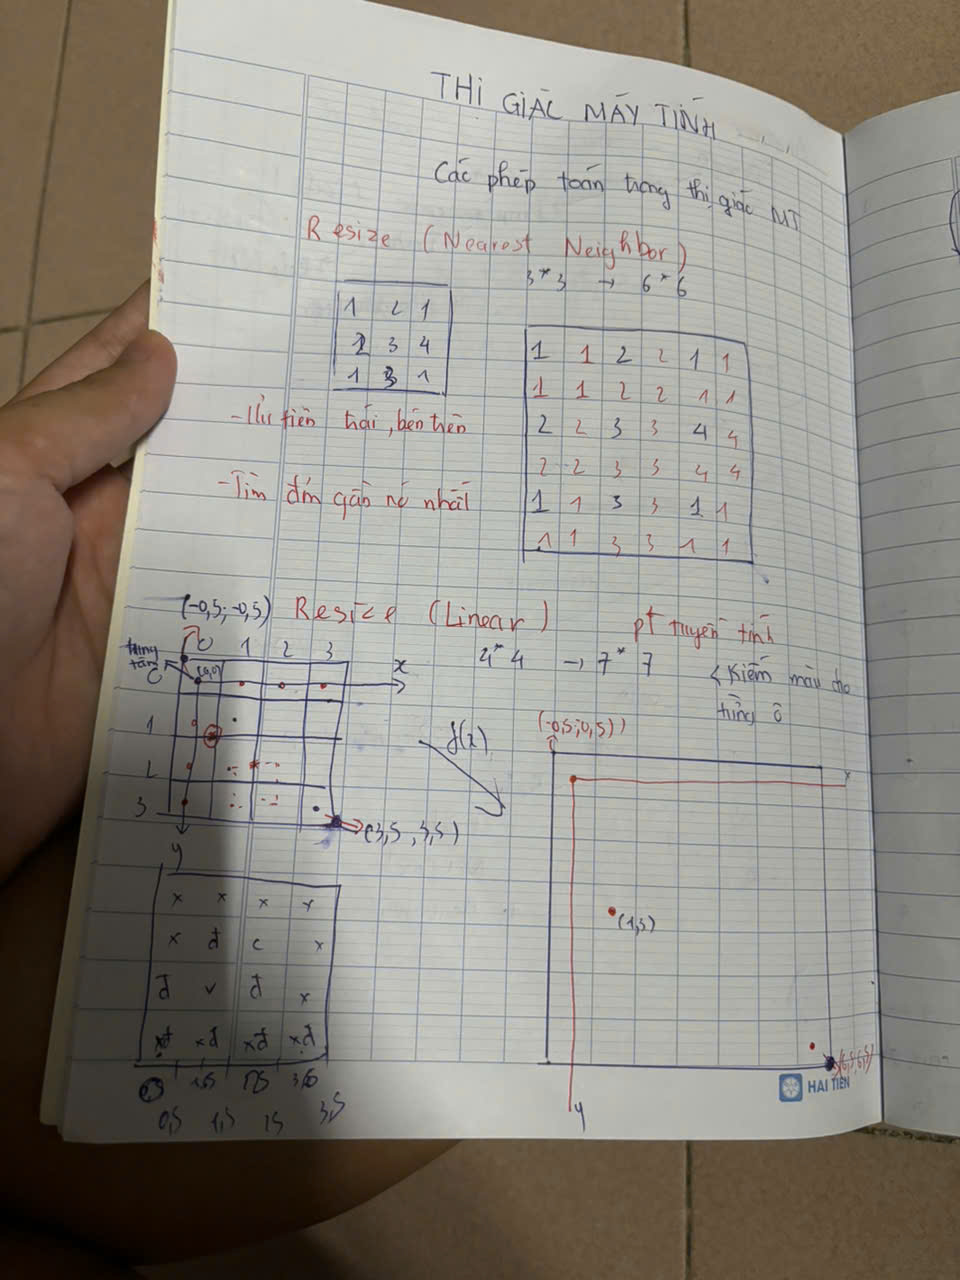 THỊ GIÁC MÁY TÍNH
Các phép toán trong thị giác MT
Resize (Nearest Neighbor)
3*3 → 6*6
1 2 1
2 3 4
1 3 1
1 1 2 2 1 1
1 1 2 2 1 1
2 2 3 3 4 4
2 2 3 3 4 4
1 1 3 3 1 1
1 1 3 3 1 1
-Ưu tiên trái, bên trên
-Tìm gần nó nhất
(-0,5; -0,5) Resize (Linear) pt tuyến tính
4*4 → 7*7
Kiếm màu cho
từng ô
trung
tâm
0 1 2 3 x
0 (0,0)
1
2
3
y
(3,5, 3,5)
f(x)
(-0,5; 0,5))
x
(1,3)
(6,5, 6,5)
y
x x x x
x đ c x
đ v đ x
xđ xđ xđ
0,5 1,5 3,5
HẢI TIẾN